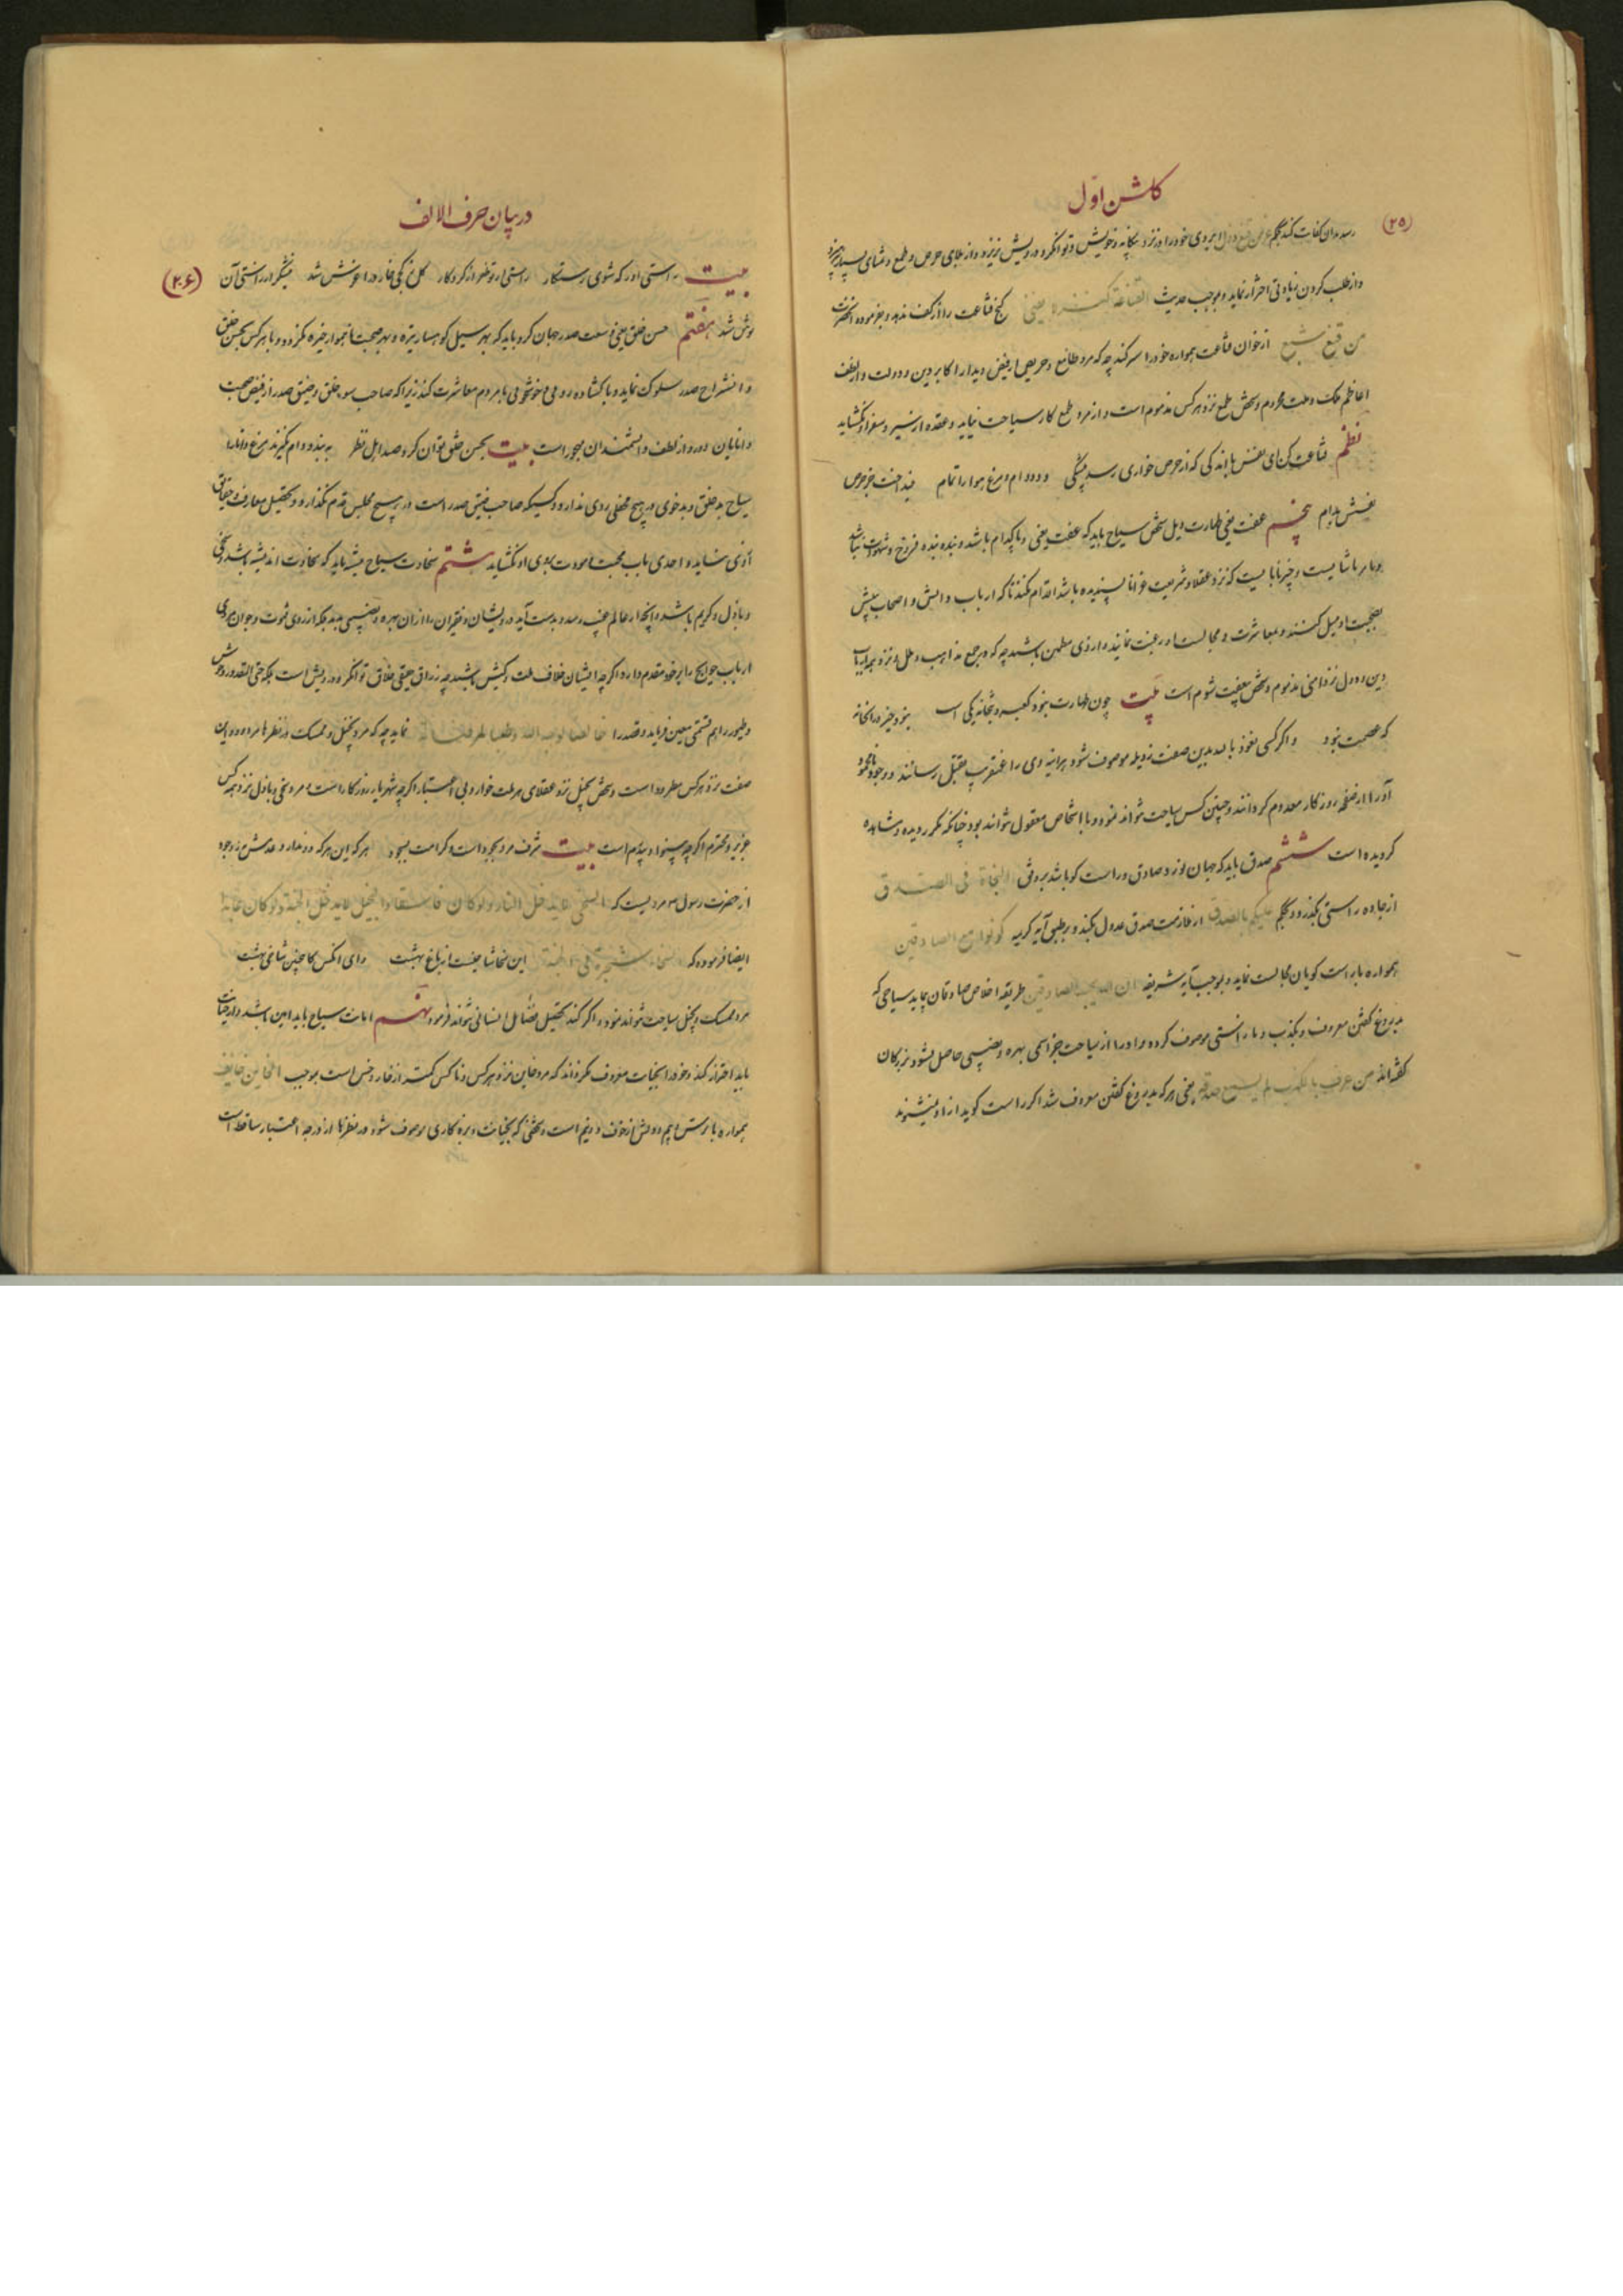 کلشن اول
(۲۵)
رسد بدان کفات کند بحکم عز من قنع و ذل ابروی خود را در نزد بیکانه و خویش و توانکر و درویش نریزد و از بلای حرص و طمع و تمنای بسیار بپرهیزد
و از طلب کردن زیادتی احتراز نماید و بموجب حدیث القناعة کنز لا یفنی کنج قناعت را از کف ندهد و بفرموده انحضرت
من قنع شبع از خوان قناعت همواره خود را سیر کند چه که مرد طامع و حریص از فیض دیدار اکابر دین و دولت و از لطف
اعاظم ملک و ملت محروم و شخص طمع نزد هرکس مذموم است و از مرد طمع کار سیاحت نیاید و عقده از سیر و سفر او نکشاید
نظم قناعت کن ای نفس باندکی که از حرص خواری رسد بیشکی دد و دام و مرغ هوا را تمام نینداخت جز حرص
خورش بدام پنجم عفت یعنی طهارت ذیل شخص سیاح باید که عفت یعنی و پاکدامن باشد و بنده بنده فروج و شهوات نباشد
و بامر ناشایست و چیز نابایست که نزد عقلا و شریعت غرا ناپسندیده باشد اقدام نکند تا که ارباب دانش و اصحاب بینش
بصحبت او میل کنند و بمعاشرت و مجالست او رغبت نمایند و از وی مطمئن باشند چه که در جمیع مذاهب و ملل و نزد همه ارباب
دین و دول زدامنی مذموم و شخص بیعفت شوم است بیت چون طهارت نبود کعبه و بتخانه یکی است نبود خیر در انخانه
که عصمت نبود و اکر کسی نعوذ بالله بدین صفت رذیله موصوف شود هرآینه وی را عنقریب بقتل رسانند و وجود نابود
او را از صفحه روزکار معدوم کردانند و چنین کس سیاحت نتواند نمود و با اشخاص معقول نتواند بود چنانکه مکرر دیده و مشاهده
کردیده است ششم صدق باید که جهان نورد صادق و راست کو باشد بر وفق النجاة فی الصدق
از جاده راستی نکذرد و بحکم علیکم بالصدق از ملازمت صدق عدول نکند و بر طبق آیه کریمه کونوا مع الصادقین
همواره با راست کویان مجالست نماید و بموجب آیه شریفه ان الله یحب الصادقین طریقه اخلاص صادقان پیماید سیاحی که
بدروغ کفتن معروف و بکذب و ناراستی موصوف کردد او را از سیاحت جز اسمی بهره و نصیبی حاصل نشود بزرکان
کفته اند من عرف بالکذب لم یسمع صدقه یعنی هرکه بدروغ کفتن معروف شد اکر راست کوید از او نشنوند
در بیان حرف الالف
(۲۶)
بیت راستی اور که شوی رستکار راستی از تو ظفر از کردکار کل ز کجی خار در اغوش شد نیشکر از راستی آن
نوش شد هفتم حسن خلق یعنی وسعت صدر جهان کرد باید که بهر سیل کوهسار تیره و بهر صحبت ناهموار خیره نکردد و با هرکس بحسن خلق
و انشراح صدر سلوک نماید و با کشاده روئی و خوشخوئی با مردم معاشرت کند زیرا که صاحب سوء خلق و ضیق صدر از فیض صحبت
دانایان دور و از لطف دانشمندان مهجور است بیت بحسن خلق توان کرد صید اهل نظر به بند و دام نکیرند مرغ دانا را
سیاح بد خلق و بدخوی در هیچ محفلی روی ندارد و کسیکه صاحب ضیق صدر است در هیچ مجلس قدم نکذارد و تحصیل معارف و حقایق
از وی نشاید و احدی باب محبت و مودت بروی او نکشاید هشتم سخاوت سیاح میشه باید که سخاوت اندیشه باشد و سخی
و باذل و کریم باشد و انچه از عالم غیب رسد و بدست آید درویشان و فقیران را از ان بهره و نصیبی بدهد بلکه از روی فتوت و جوان مردی
ارباب حوایج را بر خود مقدم دارد اکرچه ایشان خلاف ملت و کیش باشند چه رزاق حقیقی خلاق توانکر و درویش است بلکه حتی المقدور وحوش
و طیور را هم قسمتی معین فرماید و قصد را خالصا لوجه الله و طلبا لمرضاته نماید چه که مرد بخیل و ممسک در نظرها مردود و این
صفت نزد هرکس مطرود است و شخص بخیل نزد عقلای هر ملت خوار و بی اعتبار اکرچه شهریار روزکار است و مرد سخی و باذل نزد همه کس
عزیز و محترم اکرچه بینوا و بیدرم است بیت شرف مرد بجود است و کرامت بسجود هرکه این هر دو ندارد عدمش به ز وجود
از حضرت رسول ص مرویست که السخی لا یدخل النار ولو کان فاسقا والبخیل لا یدخل الجنة ولو کان عابدا
ایضا فرموده که السخاء شجرة فی الجنة این سخا شاخیست از باغ بهشت وای انکس کاین چنین شاخی بهشت
مرد ممسک و بخیل سیاحت نتواند نمود و اکر کند تحصیل فضائل انسانی نتواند فرمود نهم امانت سیاح باید امین باشد و از خیانت
باید احتراز کند و خود را بخیانت معروف نکرداند که مرد خاین نزد هرکس و ناکس کمتر از خار و خس است بموجب الخاین خایف
همواره با ترس و بیم و دلش از خوف دو نیم است و شخصی که بخیانت و بزه کاری موصوف شود در نظرها از درجه اعتبار ساقط است